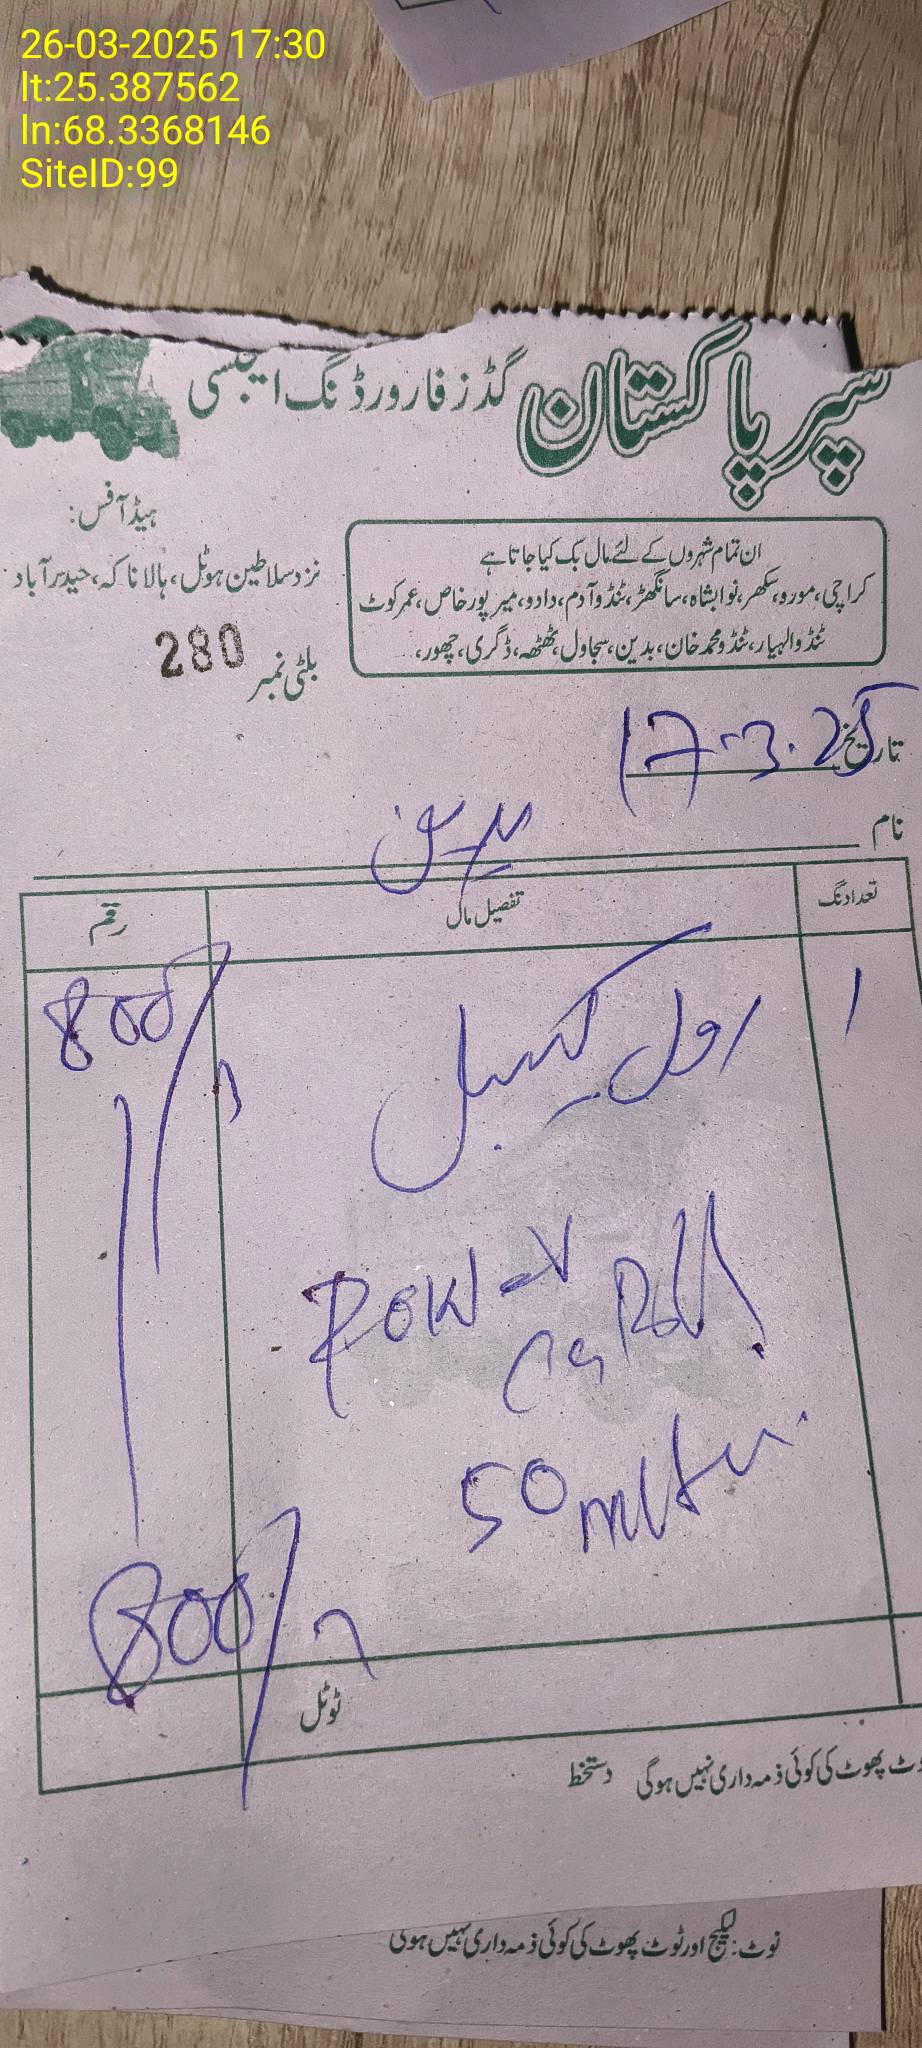 26-03-2025 17:30
lt:25.387562
ln:68.3368146
SiteID:99
سپر پاکستان گڈز فارورڈنگ ایجنسی
ہیڈ آفس:
نزد سلاطین ہوٹل، ہالا ناکہ، حیدرآباد
ان تمام شہروں کے لئے مال بک کیا جاتا ہے
کراچی، مورو، سکھر، نوابشاہ، سانگھڑ، ٹنڈو آدم، دادو، میرپور خاص، عمرکوٹ
ٹنڈوالہیار، ٹنڈو محمد خان، بدین، سجاول، ٹھٹھہ، ڈگری، چھور،
بلٹی نمبر 280
تاریخ 17-3-25
نام بدین
تعداد نگ تفصیل مال رقم
1 رول کیبل 800/
Power
Roll
50 meter
800/
ٹوٹل
ٹ پھوٹ کی کوئی ذمہ داری نہیں ہوگی دستخط
نوٹ: لیکیج اور ٹوٹ پھوٹ کی کوئی ذمہ داری نہیں ہوگی